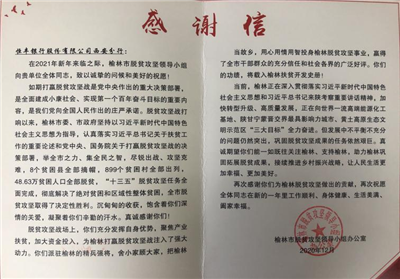 感谢信
恒丰银行股份有限公司西安分行：
在2021年新年来临之际，榆林市脱贫攻坚领导小组
向贵单位全体同志，致以诚挚的问候和美好的祝愿！
如期打赢脱贫攻坚战是党中央作出的重大决策部署，
是全面建成小康社会、实现第一个百年奋斗目标的重要内
容，是我们党向全国人民作出的庄严承诺。脱贫攻坚战打
响以来，榆林市委、市政府坚持以习近平新时代中国特色
社会主义思想为指导，认真落实习近平总书记关于扶贫工
作的重要论述和党中央、国务院关于打赢脱贫攻坚战的决
策部署，举全市之力、集全民之智，尽锐出战、攻坚克
难，8个贫困县全部摘帽，899个贫困村全部出列，
48.63万贫困人口全部脱贫，“十三五”脱贫攻坚任务全
面完成，彻底解决了绝对贫困和区域性整体贫困，全市脱
贫攻坚取得了决定性胜利。沉甸甸的收获，饱含着你们深
情的关爱，凝聚着你们辛勤的汗水。真诚感谢你们！
脱贫攻坚战场上，你们充分发挥自身优势，聚焦产业
扶贫，加大资金投入，为榆林打赢脱贫攻坚战注入了强大
动力。你们派驻榆林的精兵强将，舍小家顾大家，把榆林
当故乡，用心用情用智投身榆林脱贫攻坚事业，赢得
了全市干部群众的充分信任和社会各界的广泛好评。你
们的功绩，将载入榆林扶贫开发史册！
当前，榆林正在深入贯彻落实习近平新时代中国特
色社会主义思想和习近平总书记来陕考察重要讲话精神，加
快转型升级、高质量发展，正在向世界一流高端能源化工
基地、陕甘宁蒙晋交界最具影响力城市、黄土高原生态文
明示范区“三大目标”全力奋进。但发展中不平衡不充分
的问题仍然突出，巩固脱贫攻坚成果的任务依然艰巨。真
诚期望你们能一如既往关注榆林、支持榆林，助力榆林巩
固拓展脱贫成果，接续推进乡村振兴战略，让人民生活更
加幸福、更加美好。
再次感谢你们为榆林脱贫攻坚做出的贡献，再次祝愿
全体同志在新的一年里工作顺利、身体健康、生活美满、
阖家幸福。
榆林市脱贫攻坚领导小组办公室
2020年12月